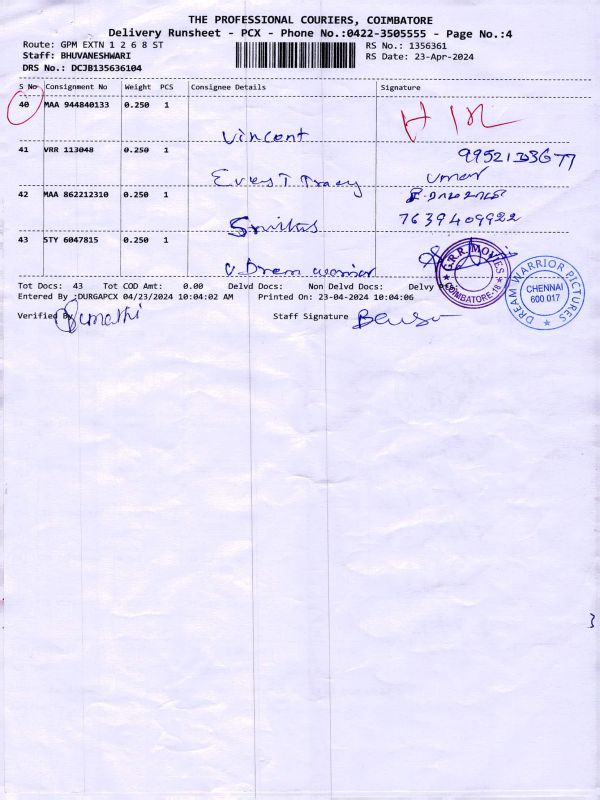 THE PROFESSIONAL COURIERS, COIMBATORE
Delivery Runsheet - PCX - Phone No.:0422-3505555 - Page No.:4
Route: GPM EXTN 1 2 6 8 ST
RS No.: 1356361
Staff: BHUVANESHWARI
RS Date: 23-Apr-2024
DRS No.: DCJB135636104
S No Consignment No Weight PCS Consignee Details Signature
40 MAA 944840133 0.250 1
Vincent
41 VRR 113048 0.250 1
42 MAA 862212310 0.250 1
7639409922
43 STY 6047815 0.250 1
Tot Docs: 43 Tot COD Amt: 0.00 Delvd Docs: Non Delvd Docs: Delvy
Entered By :DURGAPCX 04/23/2024 10:04:02 AM Printed On: 23-04-2024 10:04:06
Verified By
Staff Signature
G.R.R. MOVIES
COIMBATORE-18
DREAM WARRIOR PICTURES
CHENNAI
600 017